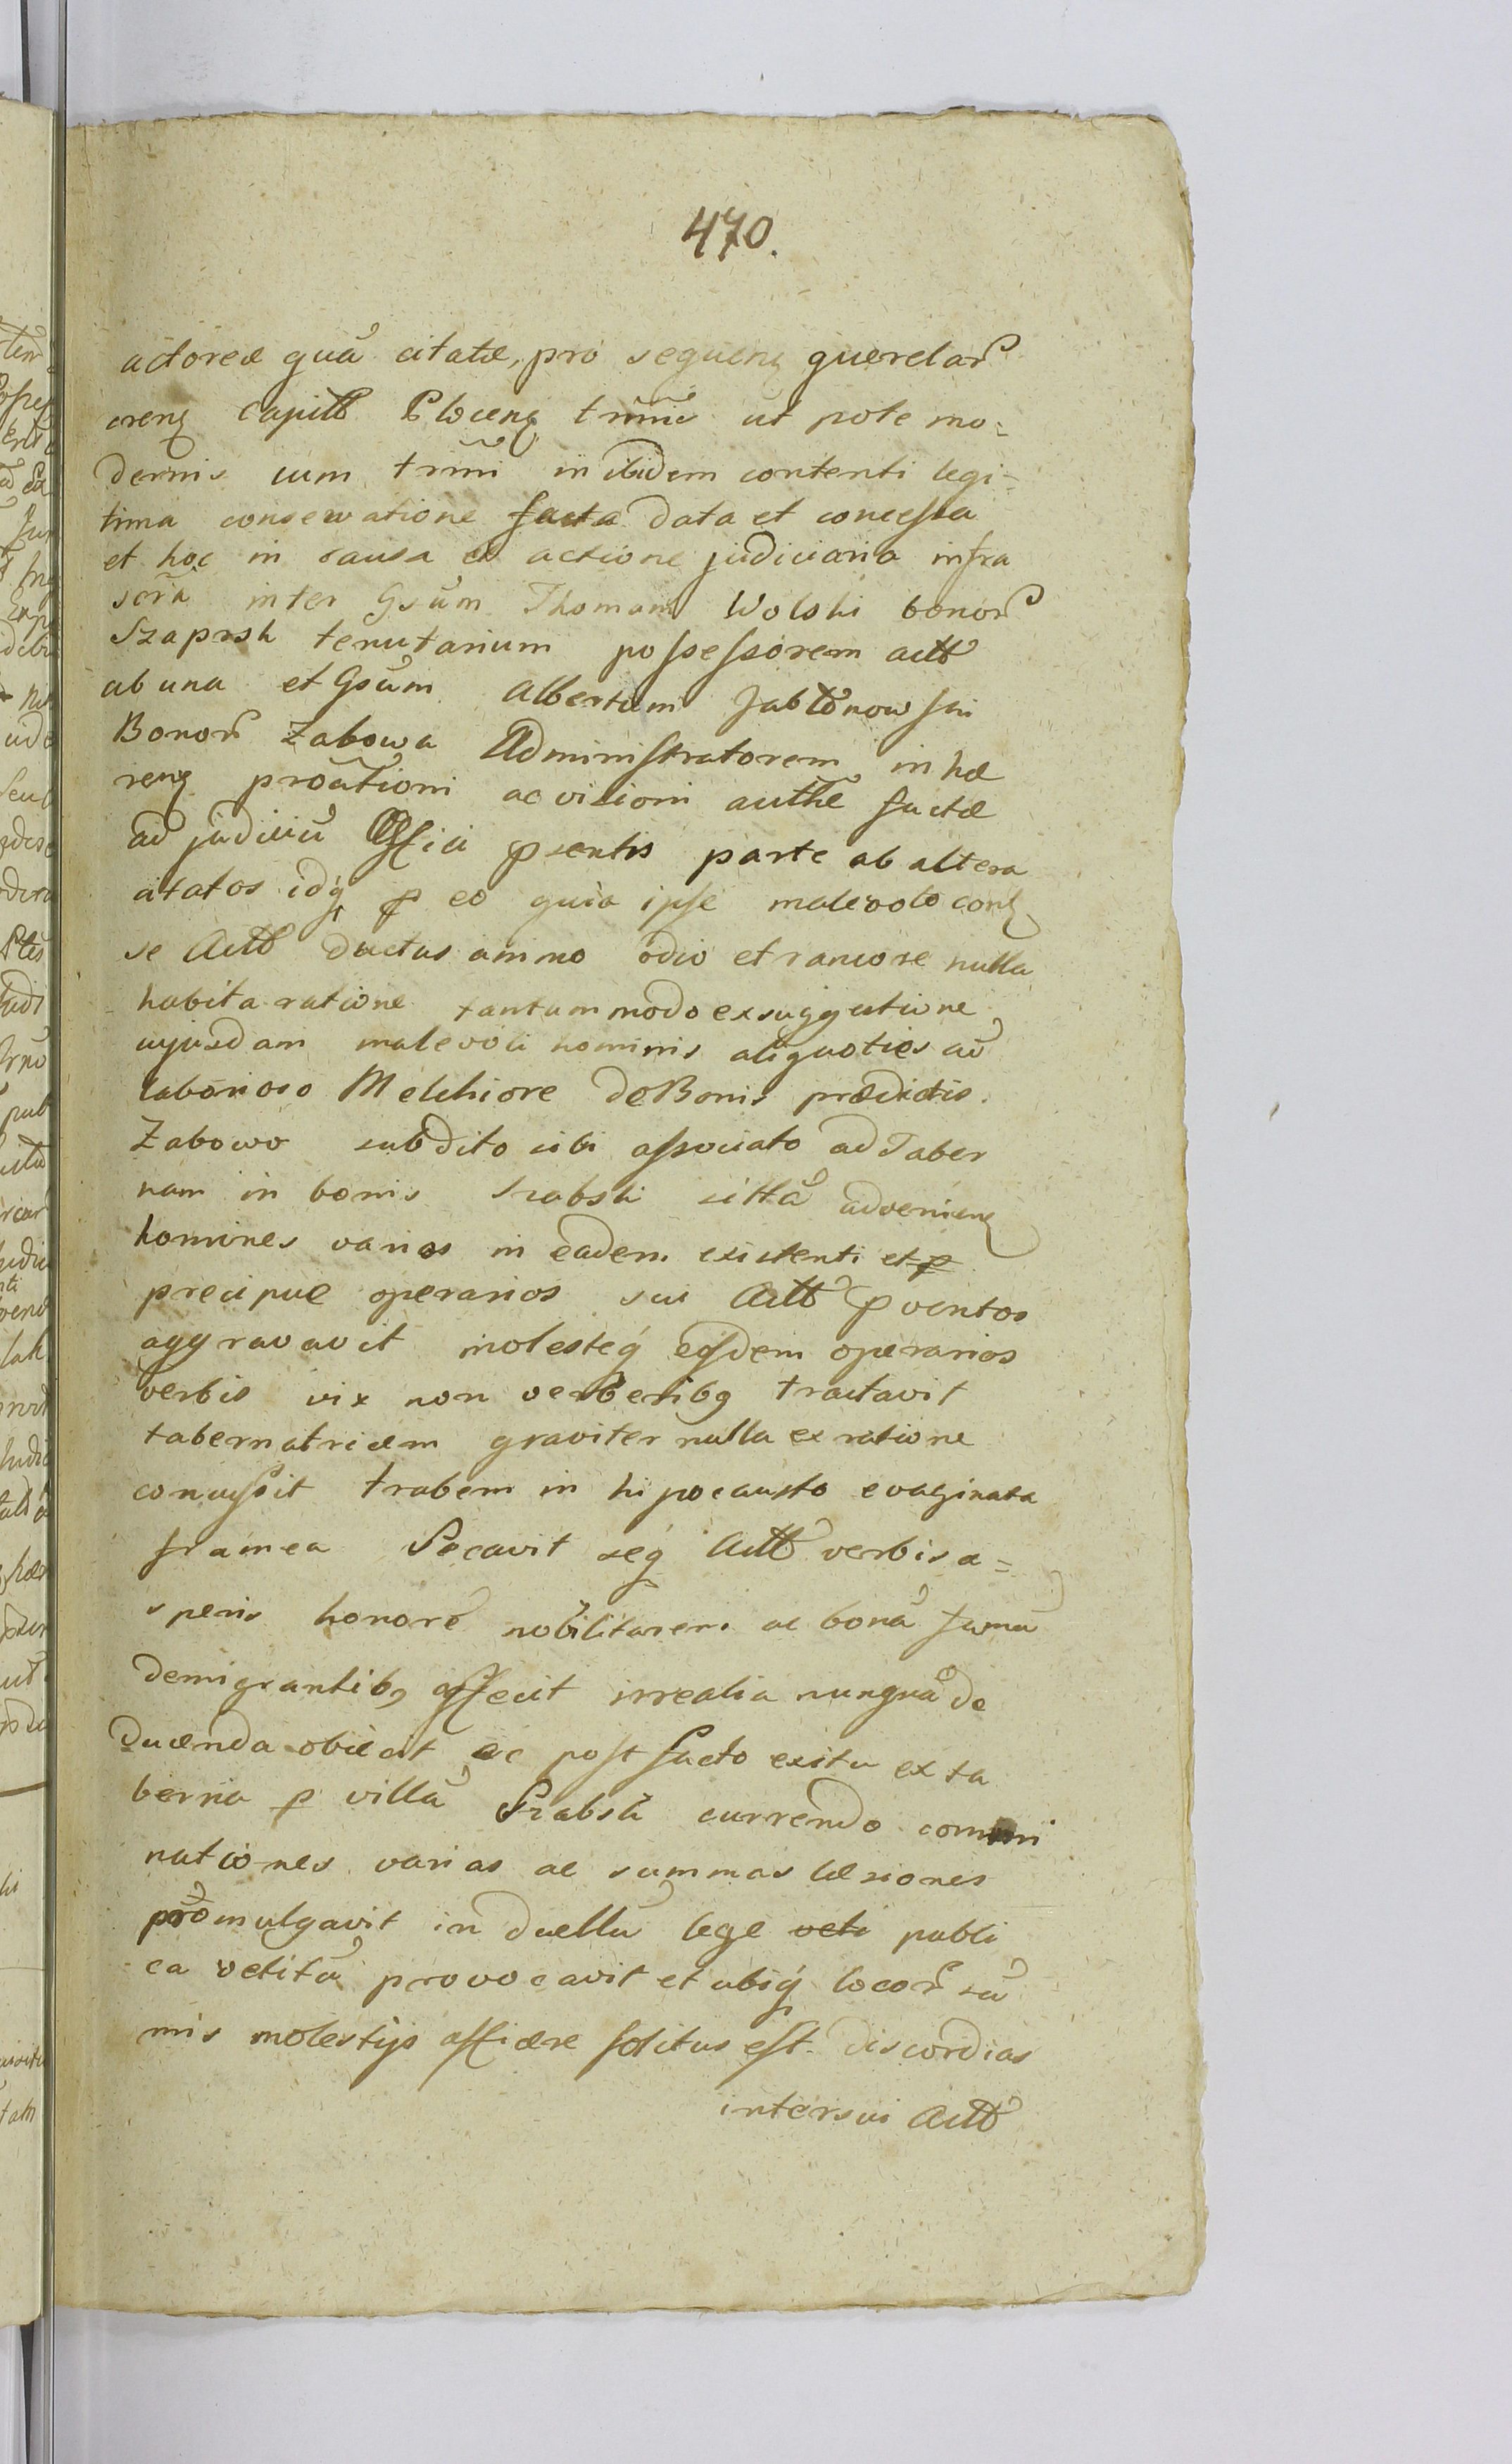 470.
actoreæ quã citatæ, pro sequenꝫ querelar̃
crenꝫ Capitt Plocenꝫ tr̃mi ut pote mo=
dernis cum tr̃mi in ibidem contenti legi=
tima conservatione facta data et concessa
et hoc in causa et actione judiciaria infra
scr̃a inter Gsum Thomam Wolski bonor̃
Szaprsk tenutarium possessorem actt
ab una et Gsum Albertum Jabłonowski
Bonor̃ Zabowa Administratorem in hæ
renꝫ proc̃ationi ac visioni authẽ factæ
ad judiciũ Officii p̃sentis parte ab altera
citatos idq̃ p eo quia ipse malevolo cont
se Actt ductus animo odio et rancore nulla
habita ratione tantummodo ex suggestione
cujusdam malevoli hominis aliquoties cũ
laborioso Melchiore de Bonis prædictis
Zabowo subdito sibi associato ad Taber
nam in bonis Srabski sittã advenienꝫ
homines varios in eadem existenti et p
precipue operarios sui Actt p̃ventos
aggravavit molesteq̃ eosdem operarios
verbis vix non verberibꝫ tractavit
tabernatricem graviter nulla ex ratione
concussit trabem in hipocausto evaginata
framea Secavit seq̃ Actt verbis a=
speris honorẽ nobilitarem ac bonã famã
demigrantibꝫ affecit irrealia nunquã de
ducenda obiecit ac post facto exitu ex ta
berna p villã Srabski currendo commi
nationes varias ac summas læsiones
promulgavit in duellũ lege veti publi
ca vetitũ provocavit et ubiq̃ locor̃ sũ
mis molestijs afficere solitus est. discordias
inter sui Actt